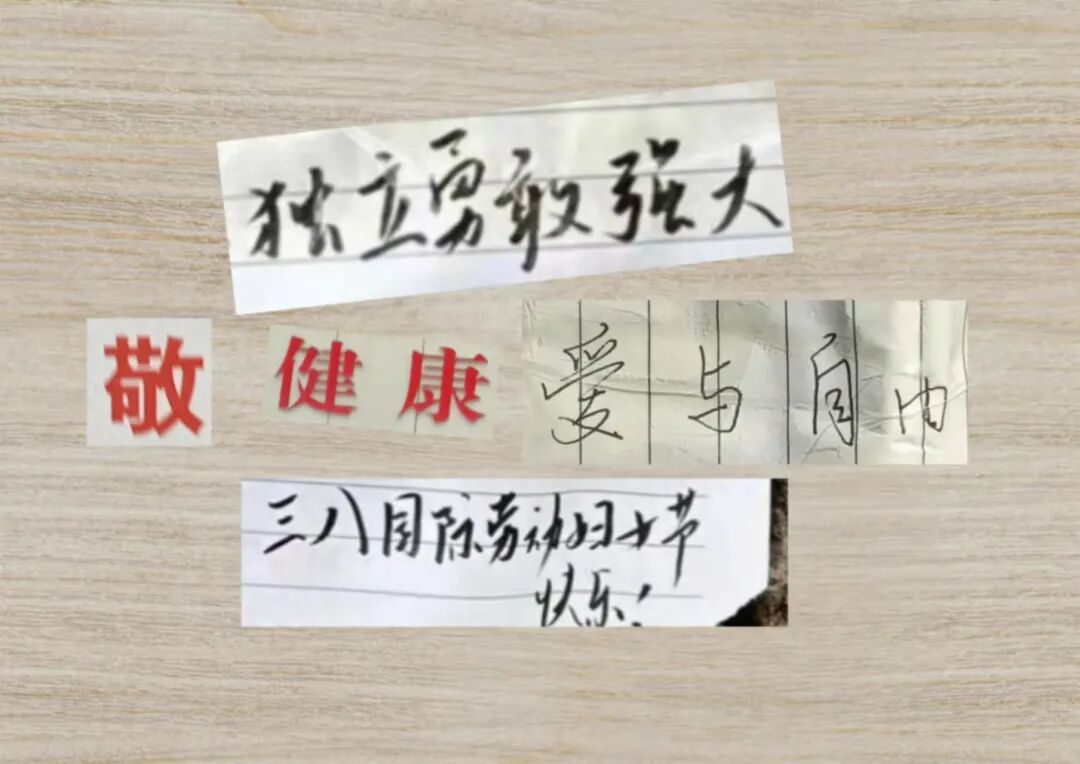 独立勇敢强大
敬 健康 爱与自由
三八国际劳动妇女节
快乐!